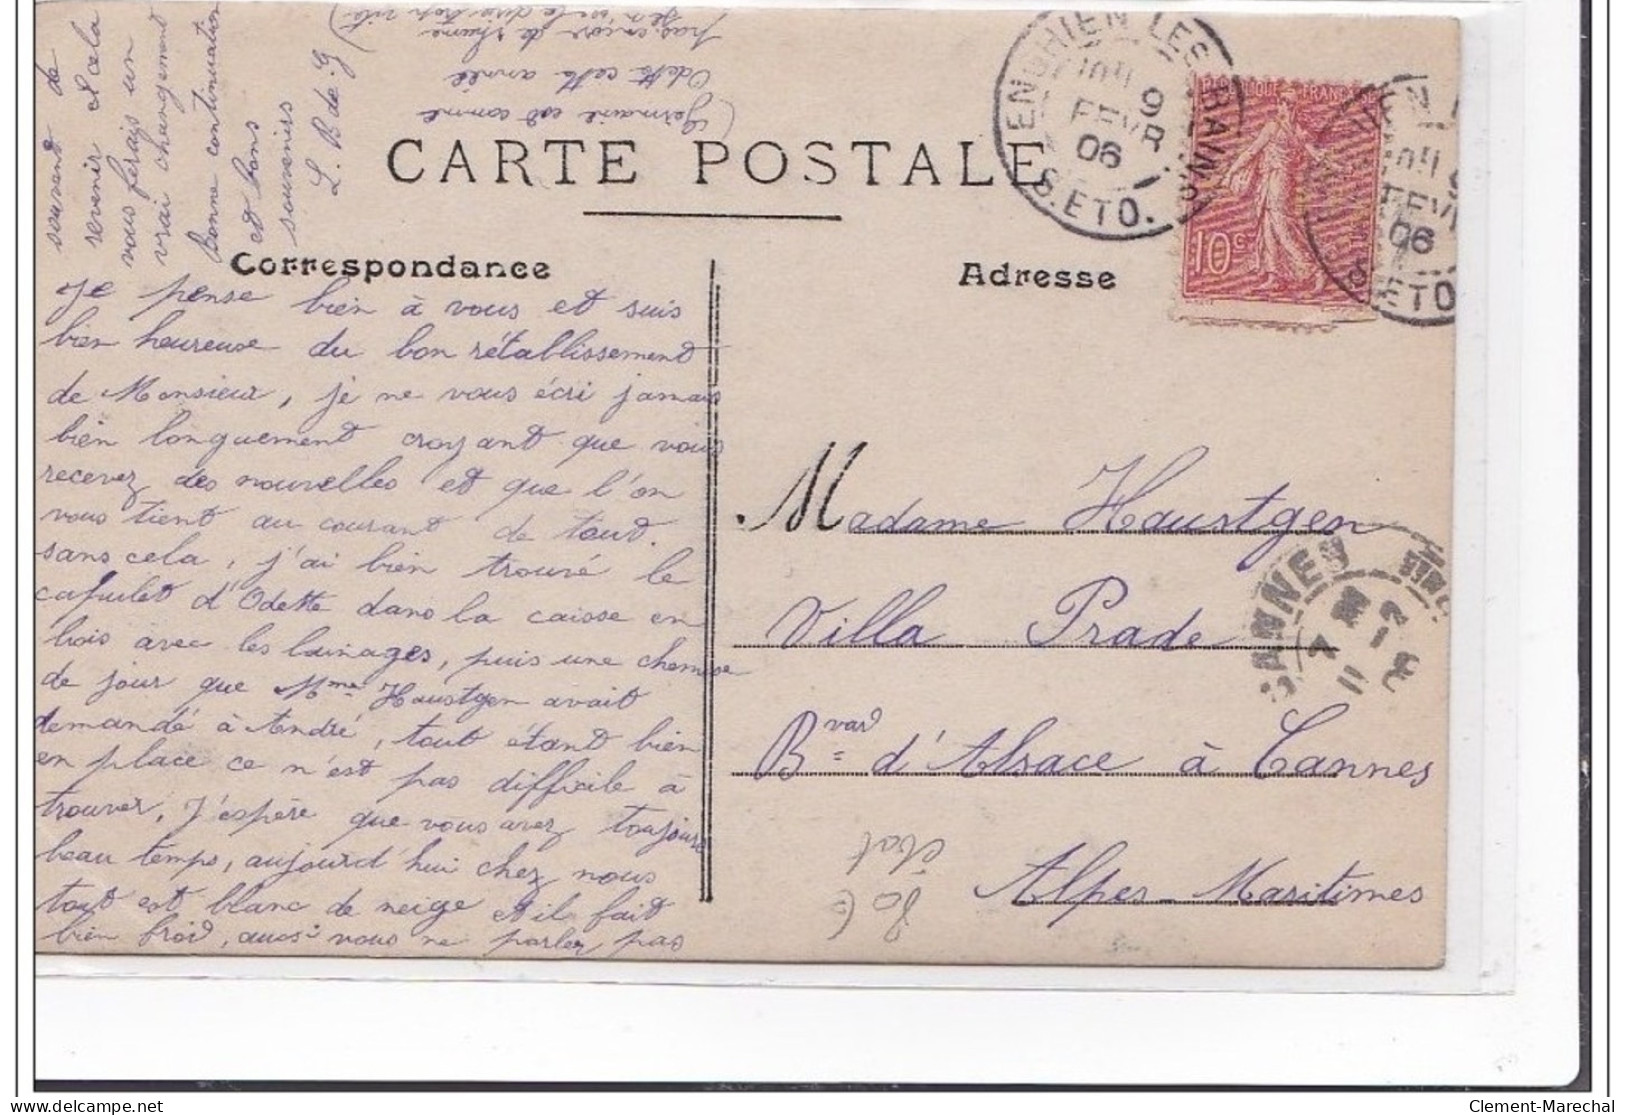 CARTE POSTALE
Correspondance
Adresse
Je pense bien à vous et suis
bien heureuse du bon rétablissement
de Monsieur, je ne vous écri jamais
bien longuement croyant que vous
recevez des nouvelles et que l'on
vous tient au courant de tout.
sans cela, j'ai bien trouvé le
capulet d'Odette dans la caisse en
bois avec les lainages, puis une chemise
de jour que Mme Haustgen avait
demandé à André, tout étant bien
en place ce n'est pas difficile à
trouver, J'espère que vous avez toujours
beau temps, aujourd'hui chez nous
tout est blanc de neige et il fait
bien froid, aussi vous ne parlez pas
souvent de
revenir et cela
vous ferais un
vrai changement
Bonne continuation
et bons
souvenirs
L. B de G
(Germaine est comme
Odette cette année
pas encore de rhume
ENGHIEN LES BAINS
9
FEVR
06
S. ET O.
REPUBLIQUE FRANÇAISE
10c
FEVR
06
ET O
Madame Haustgen
Villa Prade
Bvard d'Alsace à Cannes
Alpes-Maritimes
CANNES
80 €
état
Clement-Marechal